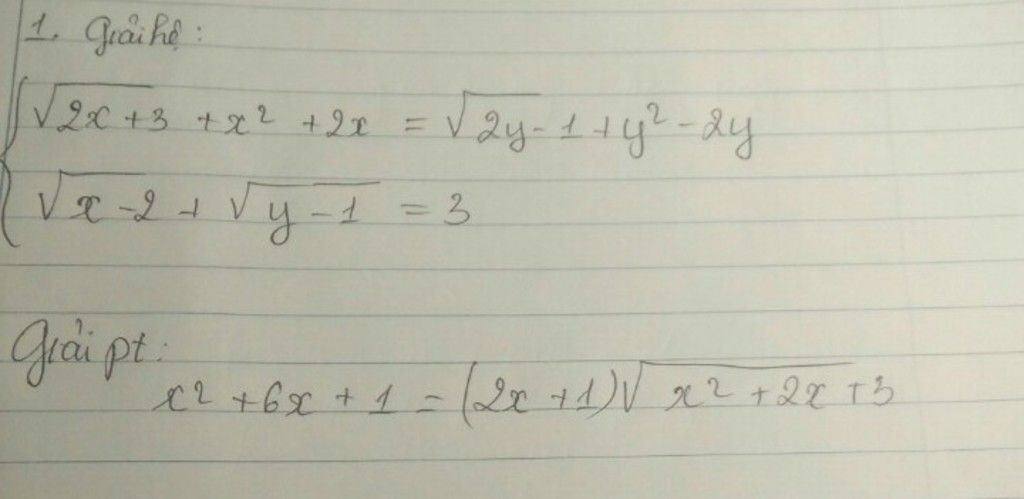 1. Giải hệ:
√(2x+3) + x² + 2x = √(2y-1) + y² - 2y
√(x-2) + √(y-1) = 3
Giải pt:
x² + 6x + 1 = (2x+1)√(x² + 2x + 3)